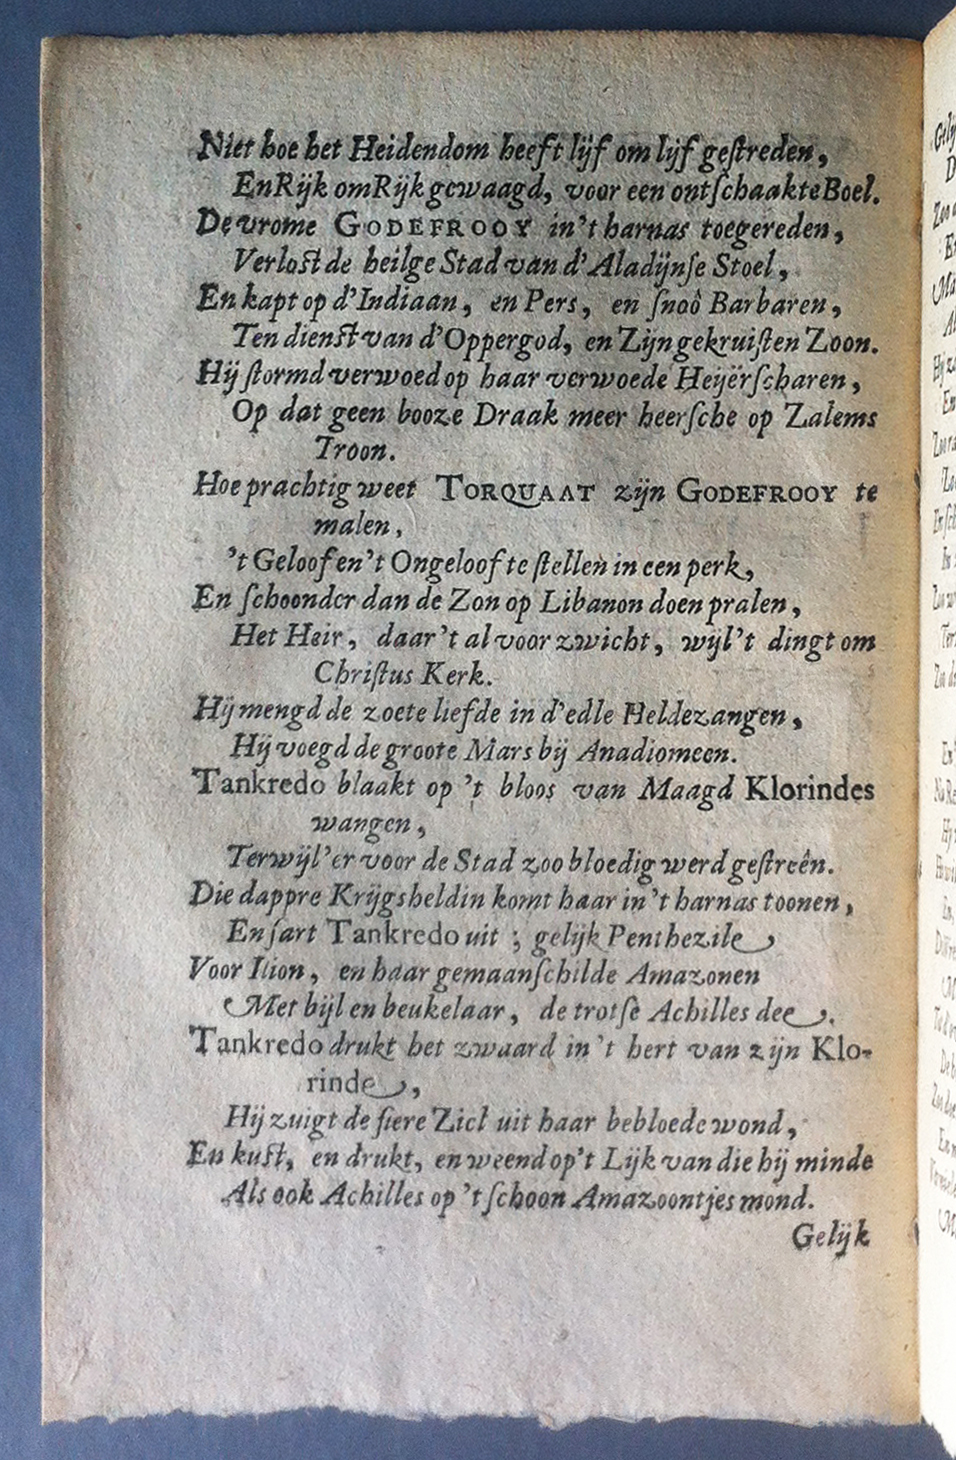 Niet hoe het Heidendom heeft lijf om lijf geſtreden,
En Rijk om Rijk gewaagd, voor een ontſchaakte Boel.
De vrome GODEFROOY in't harnas toegereden,
Verlost de heilge Stad van d'Aladijnſe Stoel,
En kapt op d'Indiaan, en Pers, en ſnoô Barbaren,
Ten dienst van d'Oppergod, en Zijn gekruiſten Zoon.
Hij ſtormd verwoed op haar verwoede Heijërſcharen,
Op dat geen booze Draak meer heerſche op Zalems
Troon.
Hoe prachtig weet TORQUAAT zijn GODEFROOY te
malen,
't Geloof en 't Ongeloof te ſtellen in een perk,
En ſchoonder dan de Zon op Libanon doen pralen,
Het Heir, daar 't al voor zwicht, wijl 't dingt om
Chriſtus Kerk.
Hij mengd de zoete liefde in d'edle Heldezangen,
Hij voegd de groote Mars bij Anadiomeen.
Tankredo blaakt op 't bloos van Maagd Klorindes
wangen,
Terwijl'er voor de Stad zoo bloedig werd geſtreên.
Die dappre Krijgsheldin komt haar in 't harnas toonen,
En ſart Tankredo uit; gelijk Penthezile
Voor Ilion, en haar gemaanſchilde Amazonen
Met bijl en beukelaar, de trotſe Achilles dee.
Tankredo drukt het zwaard in 't hert van zijn Klo-
rinde,
Hij zuigt de fiere Ziel uit haar bebloede wond,
En kust, en drukt, en weend op't Lijk van die hij minde
Als ook Achilles op 't ſchoon Amazoontjes mond.
Gelijk